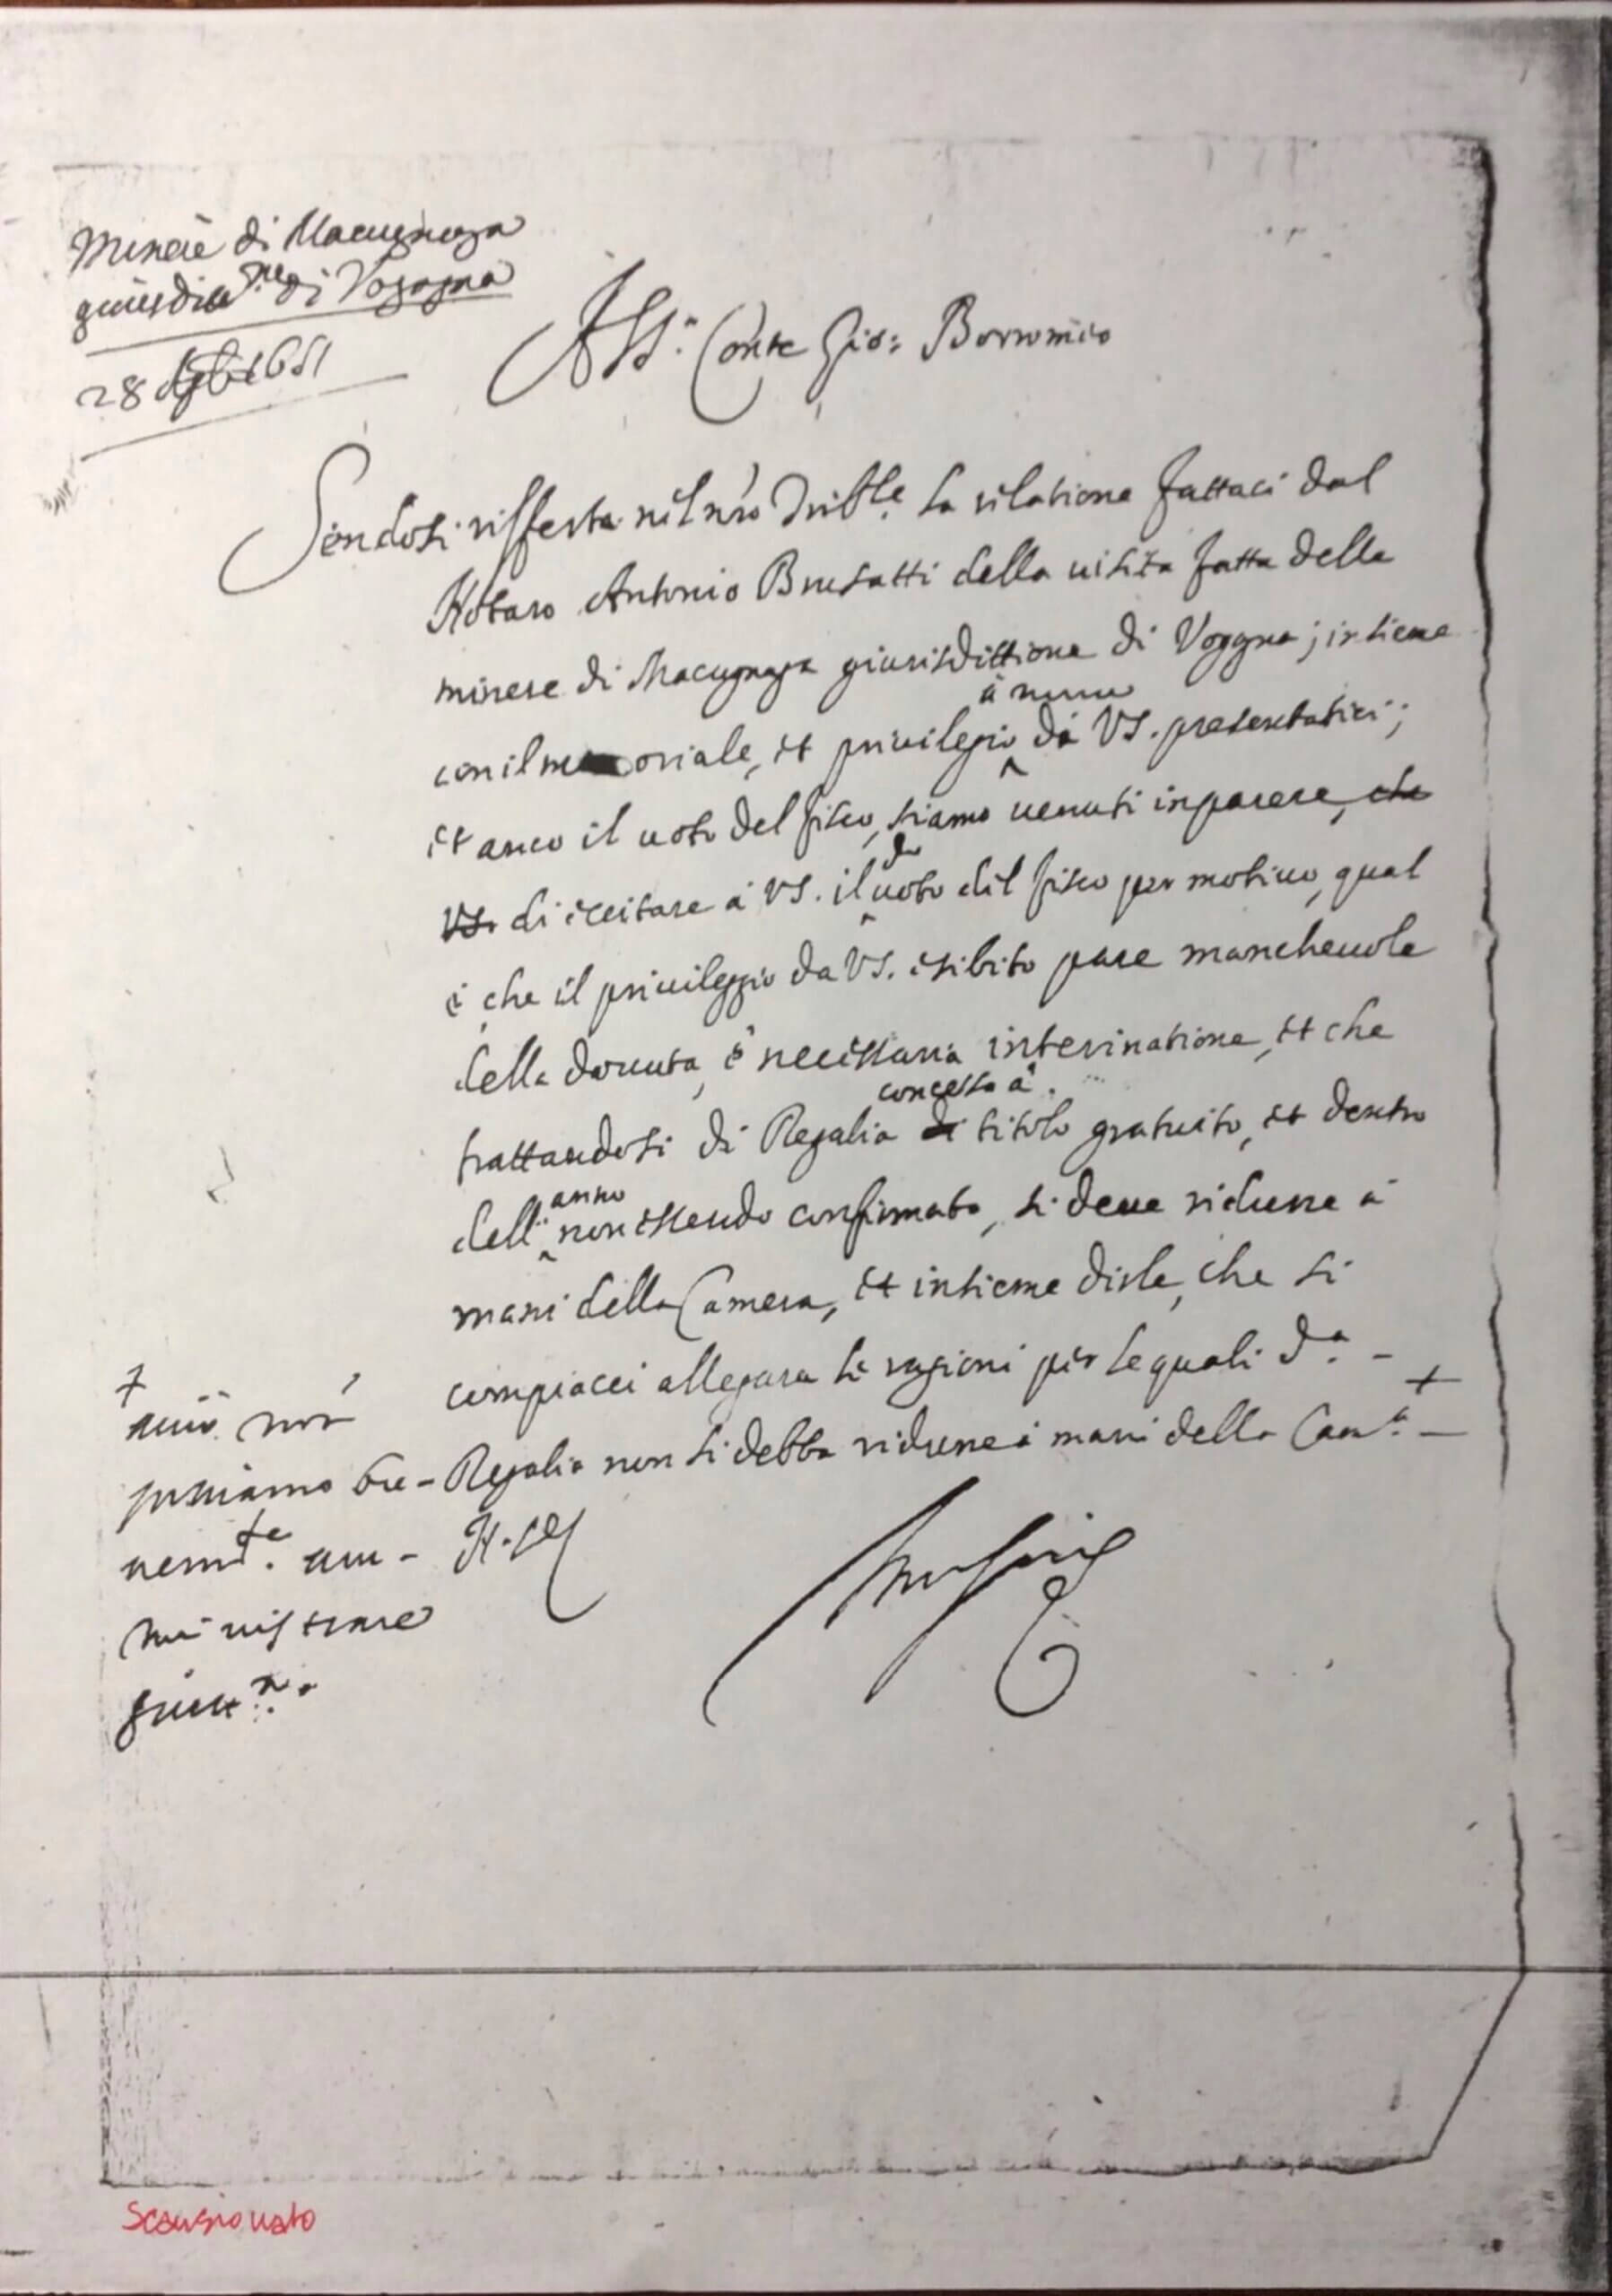 Minere di Macugnaga
giurisdit.ne di Vogogna
28 1651
Al S.r Conte Gio: Borromeo
Sendosi rifferta nel n'ro Trib.le la relatione fattaci dal
Notaro Antonio Brusatti della uisita fatta delle
minere di Macugnaga giurisdittione di Voggna; insieme
à nome
con il memoriale, et priuilegio da VS. presentatici;
et anco il uoto del fisco, siamo uenuti in parere, che
d.o
VS. di eccitare à VS. il uoto del fisco per motiuo, qual
è che il priuileggio da VS. esibito pare mancheuole
della douuta, è necessaria interinatione, et che
concessa à
trattandosi di Regalia di titolo gratuito, et dentro
anno
dell' non essendo confirmato, si deue ridurre à
mani della Camera, et insieme dirle, che si
compiacci allegare le ragioni per le quali d.a -
Regalia non si debba ridurre à mani della Cam.a -
N. S.
+
+
acciò noi
possiamo bre-
uem.te am-
ministrare
giust.a.
Scansionato